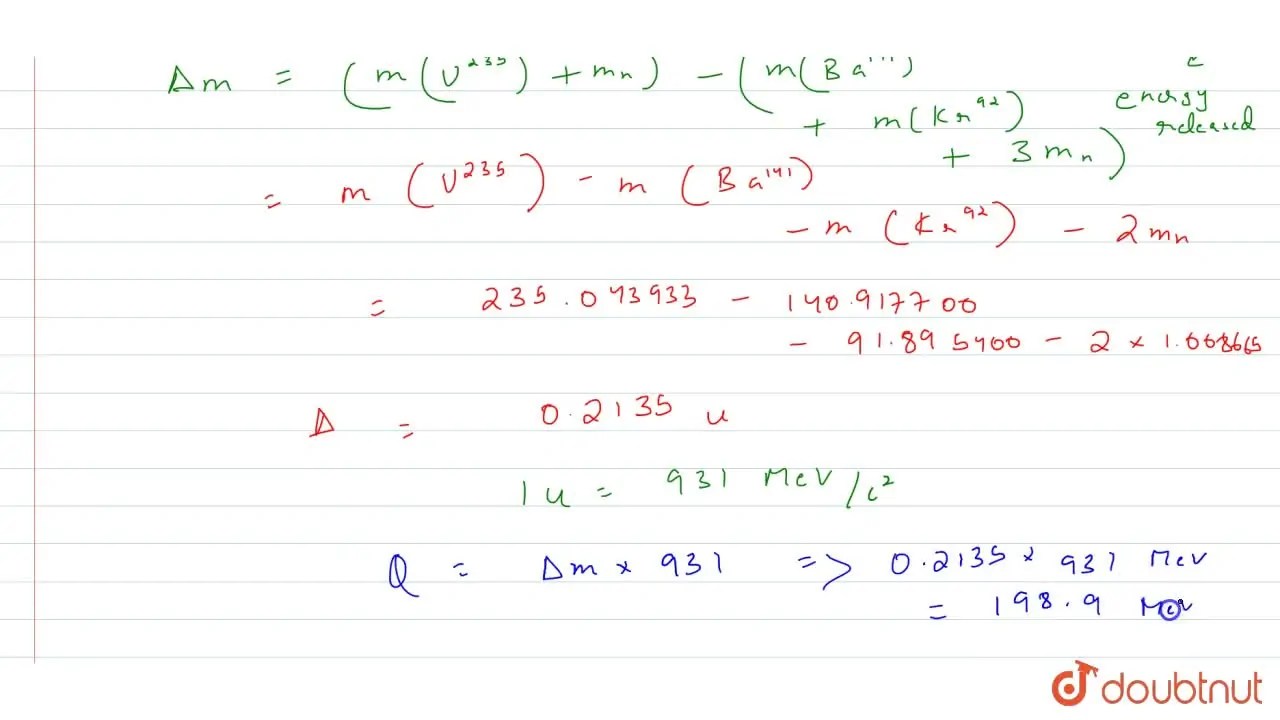 Δm = (m(U²³⁵) + mn) - (m(Ba¹⁴¹)
+ m(Kr⁹²)
+ 3mn)
energy
released
= m(U²³⁵) - m(Ba¹⁴¹)
- m(Kr⁹²) - 2mn
= 235.043933 - 140.917700
- 91.895400 - 2 × 1.008665
Δ = 0.2135 u
1u = 931 MeV/c²
Q = Δm × 931 => 0.2135 × 931 MeV
= 198.9 MeV
doubtnut